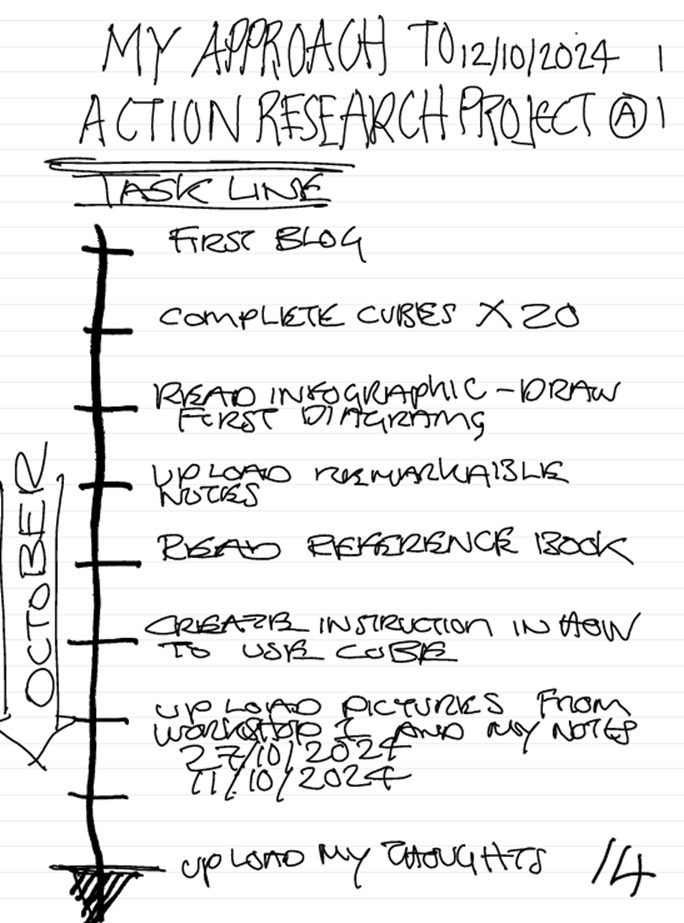 MY APPROACH TO 12/10/2024 1
ACTION RESEARCH PROJECT Ⓐ 1
TASK LINE
FIRST BLOG
COMPLETE CUBES X 20
READ INFOGRAPHIC - DRAW
FIRST DIAGRAMS
UPLOAD REMARKABLE
NOTES
READ REFERENCE BOOK
CREATE INSTRUCTION IN HOW
TO USE CUBE
UPLOAD PICTURES FROM
WORKSHOP 1 AND MY NOTES
27/10/2024
11/10/2024
UPLOAD MY THOUGHTS /4
OCTOBER